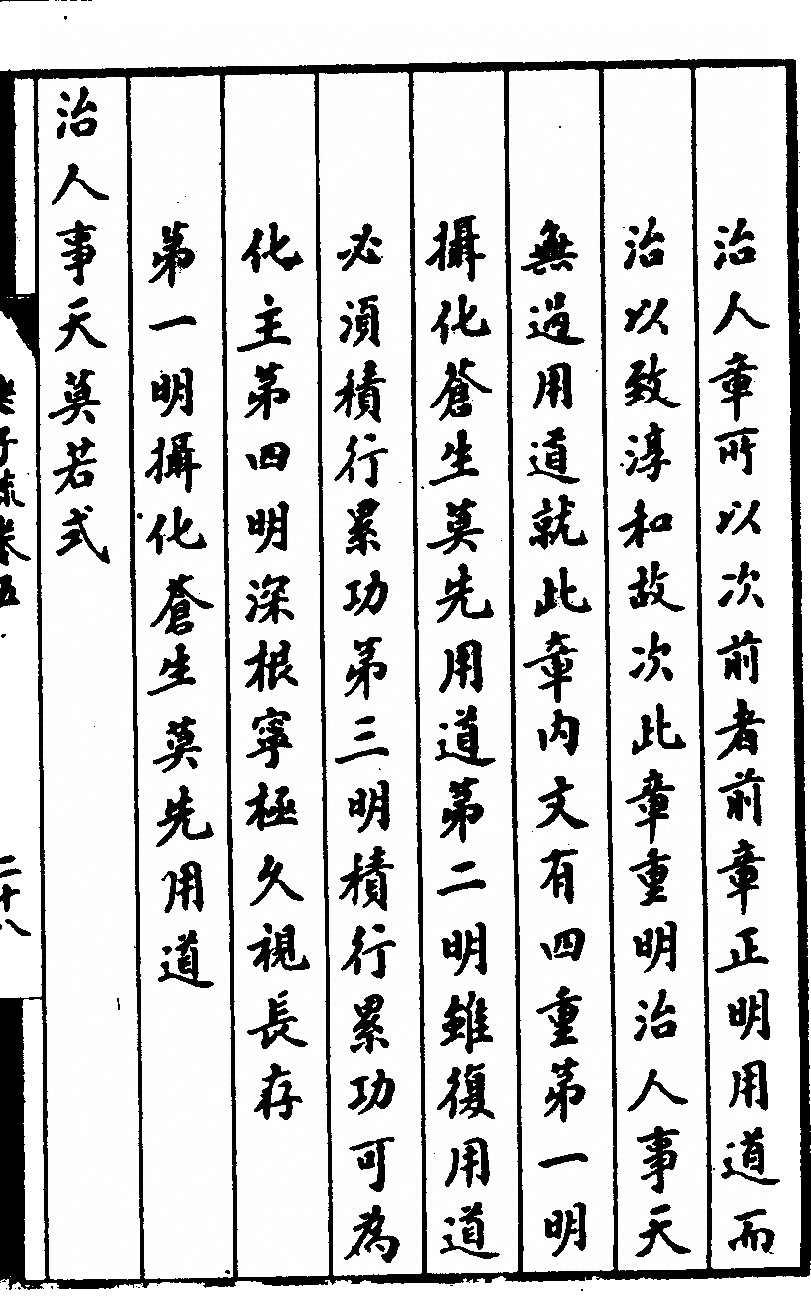 治人章所以次前者前章正明用道而
治以致淳和故次此章重明治人事天
無過用道就此章內文有四重第一明
攝化蒼生莫先用道第二明雖復用道
必須積行累功第三明積行累功可為
化主第四明深根寧極久視長存
第一明攝化蒼生莫先用道
治人事天莫若式
老子疏卷五
二十八